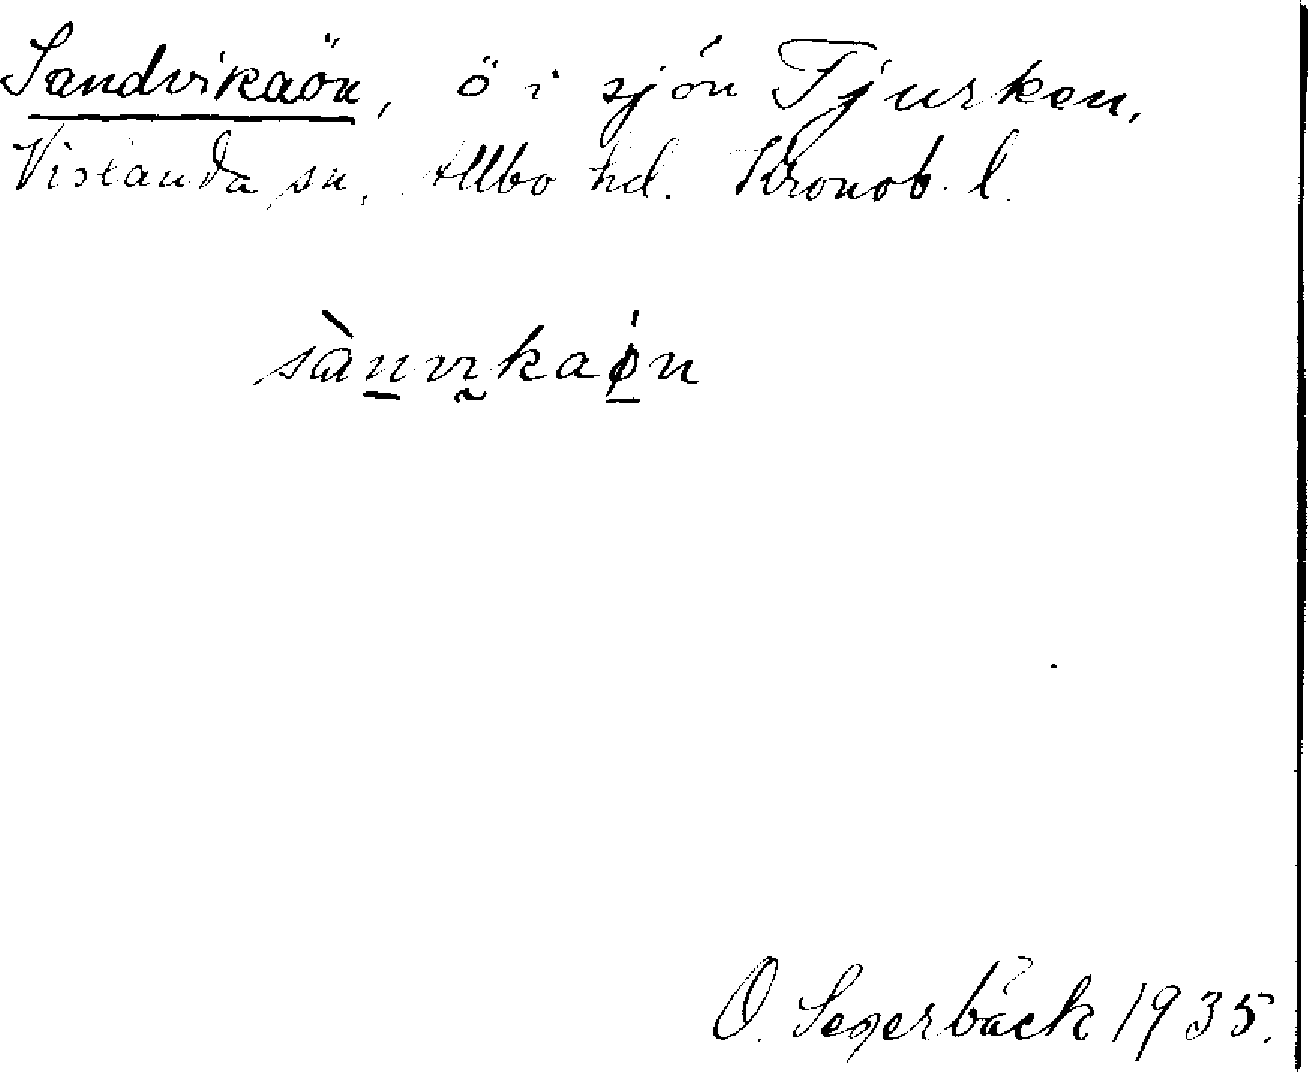 Sandvikaön, ö i sjön Tjurken,
Vislanda sn, Allbo hd. Kronob. l.
sànvikaøn
O. Segerbäck 1935.